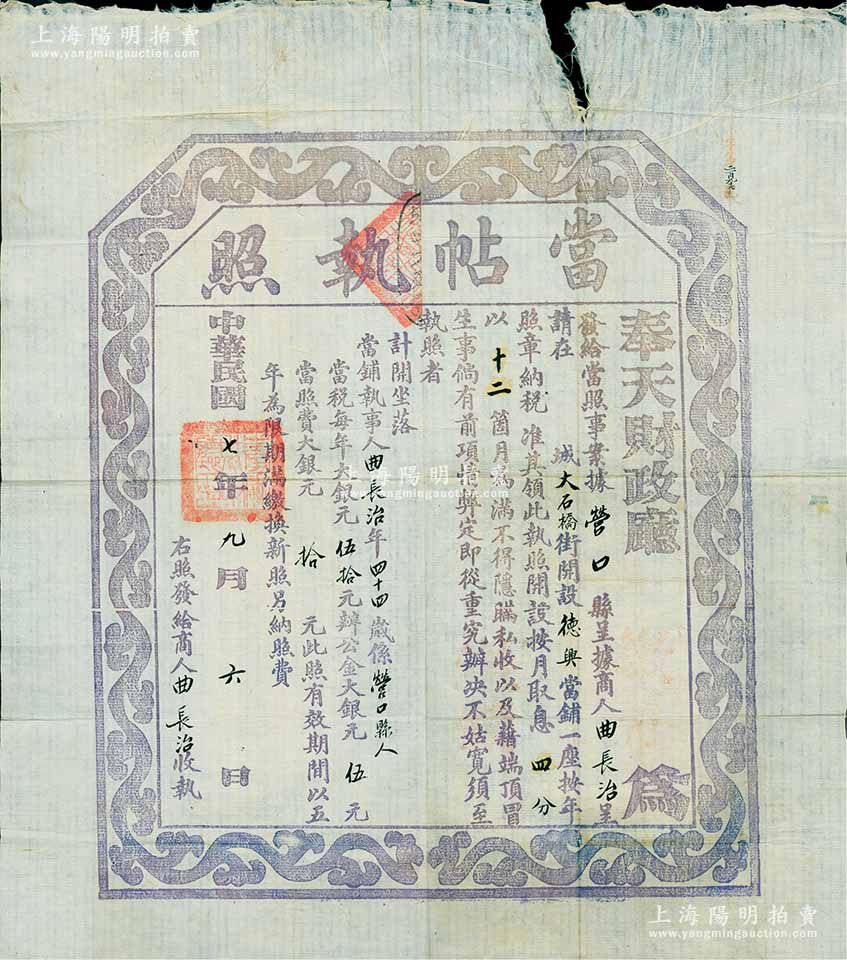 上海陽明拍賣
www.yangmingauction.com
當帖執照
奉天財政廳 為
發給當照事案據營口縣呈據商人曲長治呈
請在 城大石橋街開設德興當鋪一座按年
照章納稅 准其領此執照開設按月取息 四分
以 十二 箇月為滿不得隱瞞私收以及藉端頂冒
生事倘有前項情弊定即從重究辦決不姑寬須至
執照者
計開坐落
當鋪執事人曲長治年四十四歲係營口縣人
當稅每年大銀元伍拾元辦公金大銀元 伍 元
當照費大銀元 拾 元此照有效期間以五
年為限期滿繳換新照另納照費
中華民國 七年 九月 六 日
右照發給商人曲長治收執
上海陽明拍賣
www.yangmingauction.com
上海陽明拍賣
www.yangmingauction.com